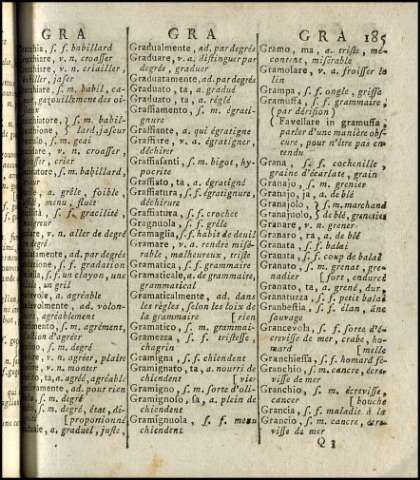 GRA GRA GRA 185
s. f. babillard
v. n. croasser
v. n. criailler,
jaser
s. m. babil, ca-
gazouillement des oi-
s. m. babil-
lard, jaseur
s. m. geai
v. n. croasser,
crier
s. m. babillard,
a. grêle, foible,
menu, fluet
s. f. gracilité,
maigreur
v. n. aller de degré
degré
ad. par degrés
s. f. gradation
s. f. un clayon, une
un gril
a. agréable
ad. volon-
agréablement
s. m. agrément,
d'agréer
s. m. degré
v. n. agréer, plaire
v. n. monter
ta, a. agréé, agréable
ad. pour rien
s. m. degré
s. m. degré, état, di-
[proportionné
a. graduel, juste,
Gradualmente, ad. par degrés
Graduare, v. a. distinguer par
degrés, graduer
Graduatamente, ad. par degrés
Graduato, ta, a. gradué
Graduato, ta, a. réglé
Graffiamento, s. m. égrati-
gnure
Graffiante, a. qui égratigne
Graffiare, v. a. égratigner,
déchirer
Graffiasanti, s. m. bigot, hy-
pocrite
Graffiato, ta, a. égratigné
Graffiatura, s. f. égratignure,
déchirure
Graffiatura, s. f. crochet
Gragnuola, s. f. grêle
Gramaglia, s. f. habit de deuil
Gramare, v. a. rendre misé-
rable, malheureux, triste
Gramatica, s. f. grammaire
Gramaticale, a. de grammaire,
grammatical
Gramaticalmente, ad. dans
les règles, selon les loix de
la grammaire [rien
Gramatico, s. m. grammai-
Gramezza, s. f. tristesse
chagrin
Gramigna, s. f. chiendent
Gramignato, ta, a. nourri de
chiendent [vie
Gramigno, s. m. sorte d'oli-
Gramignoso, sa, a. plein de
chiendent
Gramignuola, s. f. menu
chiendent
Gramo, ma, a. triste, mé-
content, misérable
Gramolare, v. a. froisser le
lin
Grampa, s. f. ongle, griffe
Gramuffa, s. f. grammaire,
(par dérision)
{ Favellare in gramuffa,
parler d'une manière obs-
cure, pour n'être pas en-
tendu
Grana, s. f. cochenille,
graine d'écarlate, grain
Granajo, s. m. grenier
Granajo, ja, a. de blé
Granajolo, } s. m. marchand
Granajuolo, } de blé, grenetier
Granare, v. n. grener
Granaro, ra, a. de blé
Granata, s. f. balai
Granata, s. f. coup de balai
Granato, s. m. grenat, gre-
nadier [fort, endurci
Granato, ta, a. grené, dur,
Granatuzza, s. f. petit balai
Granbestia, s. f. élan, âne
sauvage
Grancevola, s. f. sorte d'é-
crevisse de mer, crabe, ho-
mard [melle
Granchiessa, s. f. homard fé-
Granchio, s. m. cancre, écre-
visse de mer
Granchio, s. m. écrevisse,
cancer [bouche
Grancia, s. f. maladie à la
Grancio, s. m. cancre, écre-
visse de mer
Q 3